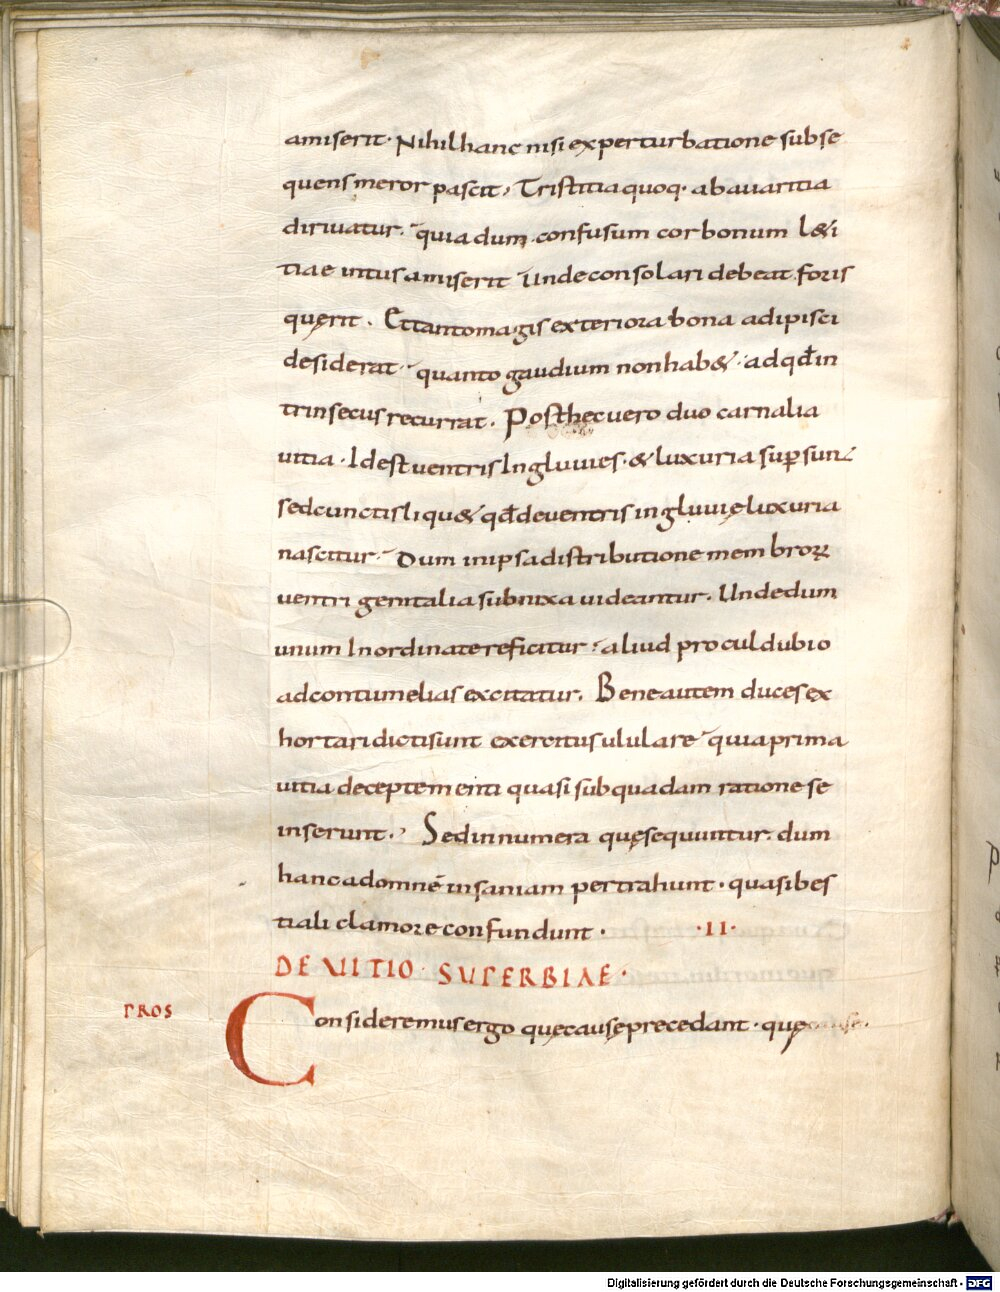 amiserit· Nihil hanc nisi ex perturbatione subse
quens meror pascit, Tristitia quoq· ab avaritia
dirivatur. quia dum confusum cor bonum l&i
tiae intus amiserit Unde consolari debeat foris
quęrit. Et tanto magis exteriora bona adipisci
desiderat· quanto gaudium non hab& ad qđ in
trinsecus recurrat. Post hec uero duo carnalia
uitia· Id est uentris Ingluuies· & luxuria sup̱sunt
sed cunctis liqu& qđ de uentris ingluuię luxuria
nascitur· Dum in ipsa distributione membroꝝ
uentri genitalia subnixa uideantur. Unde dum
unum Inordinate reficitur· aliud procul dubio
ad contumelias excitatur. Bene autem duces ex
hortari dicti sunt exercitus ululare quia prima
uitia deceptę menti quasi sub quadam ratione se
inserunt., Sed innumera quę sequuntur· dum
hanc ad omnē insaniam pertrahunt· quasi bes
tiali clamore confundunt· ·II·
DE VITIO· SUPERBIAE·
PROS
Consideremus ergo quę cause precedant· quę
Digitalisierung gefördert durch die Deutsche Forschungsgemeinschaft - DFG